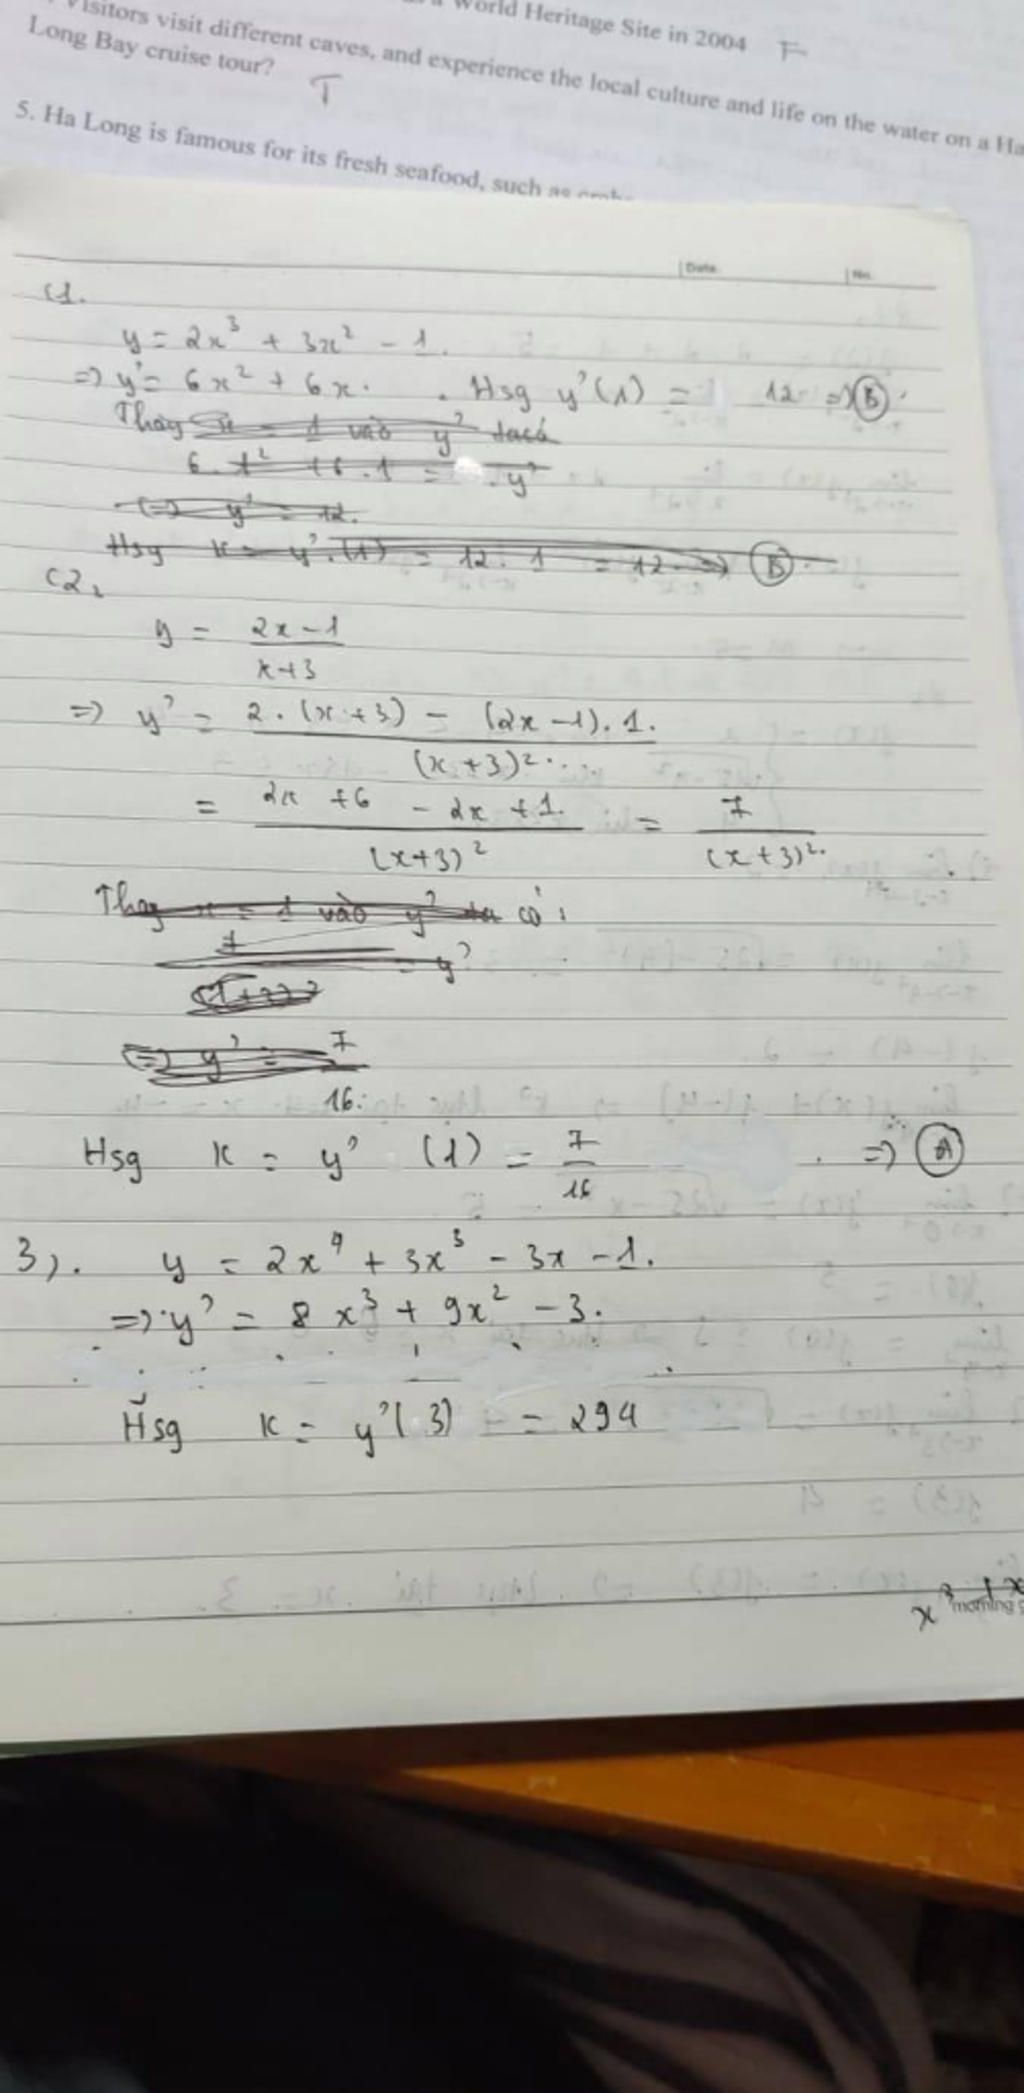 World Heritage Site in 2004 F
Visitors visit different caves, and experience the local culture and life on the water on a Ha
Long Bay cruise tour? T
5. Ha Long is famous for its fresh seafood, such as
Date No.
C1.
y = 2x³ + 3x² - 1.
=> y' = 6x² + 6x. Hsg y'(1) = 12 => B
Thay x = 1 vào y' ta có
6.1² + 6.1 = y'
<=> y' = 12.
Hsg k = y'.(1) = 12.1 = 12 => B
C2,
y = (2x-1)/(x+3)
=> y' = (2.(x+3) - (2x-1).1.)/(x+3)²
= (2x+6 - 2x+1.)/(x+3)² = 7/(x+3)².
Thay x = 1 vào y' ta có:
7/(1+3)² = y'
<=> y' = 7/16.
Hsg k = y'(1) = 7/16 => A
3). y = 2x⁴ + 3x³ - 3x - 1.
=> y' = 8x³ + 9x² - 3.
Hsg k = y'(3) = 294
x³ + x
morning